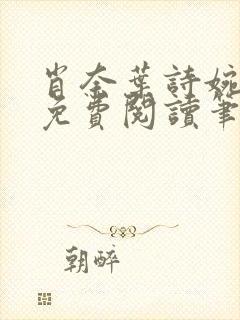 肖奈葉詩婉
免費閱讀筆
朝醉